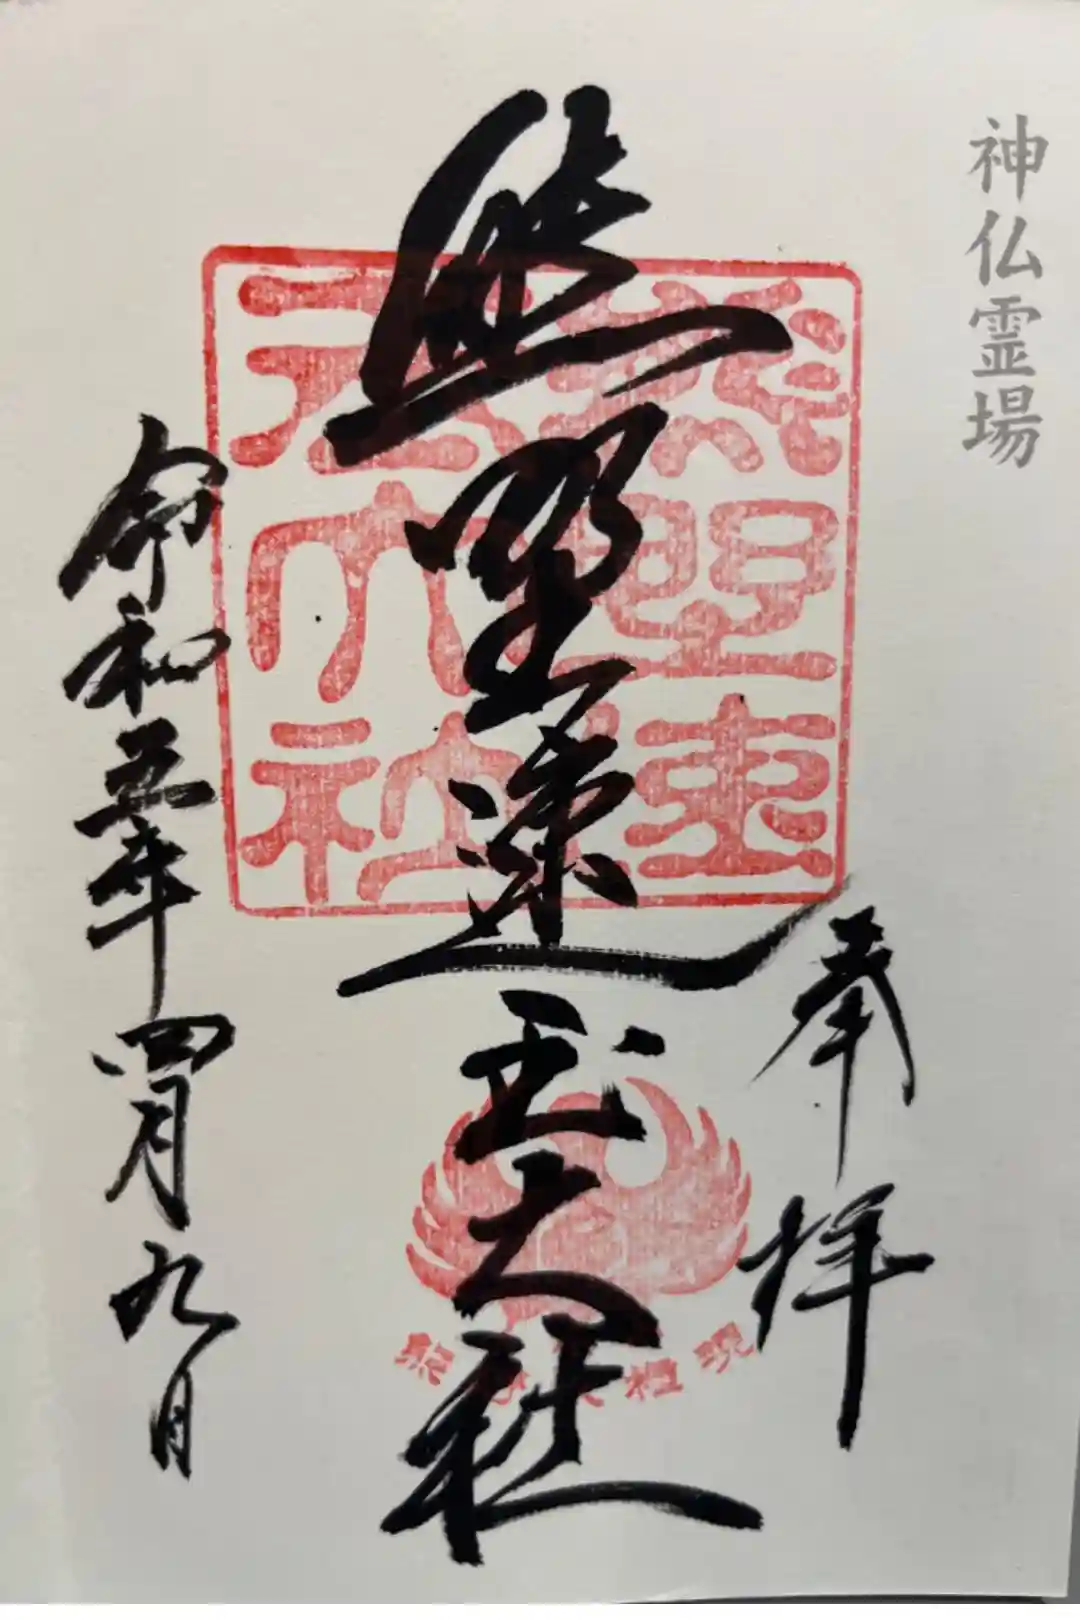 神仏霊場
奉拝
熊野速玉大社
熊野速玉大社
熊野大権現
令和五年四月九日